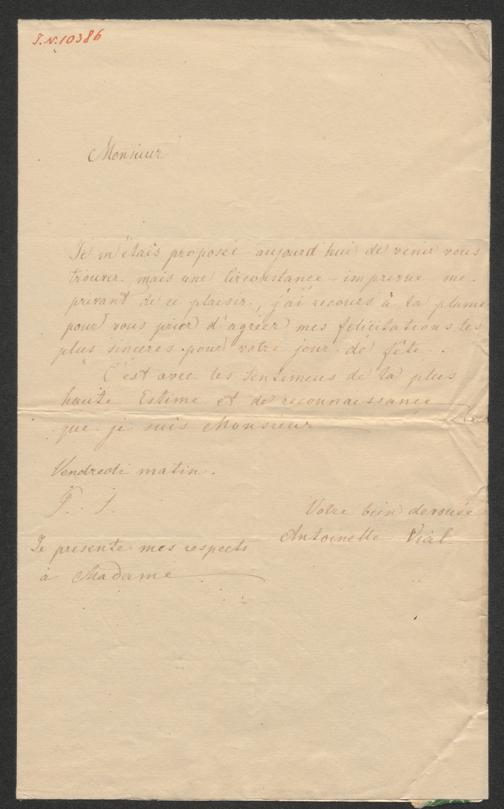 I.N.10386
Monsieur
Je m'étais proposée aujourd'hui de venir vous
trouver mais une circonstance imprevue me
privant de ce plaisir, j'ai recours à la plume
pour vous prier d'agréer mes félicitations les
plus sincères pour votre jour de fête.
C'est avec les sentimens de la plus
haute Estime et de reconnaissance
que je suis Monsieur
Vendredi matin.
Votre bien dévouée
Antoinette Vial
Je présente mes respects
à Madame